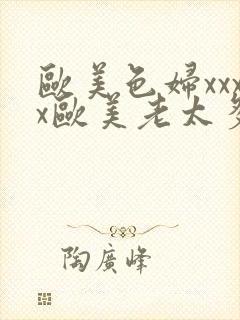 歐美色婦xxx
x歐美老太
陶廣峰